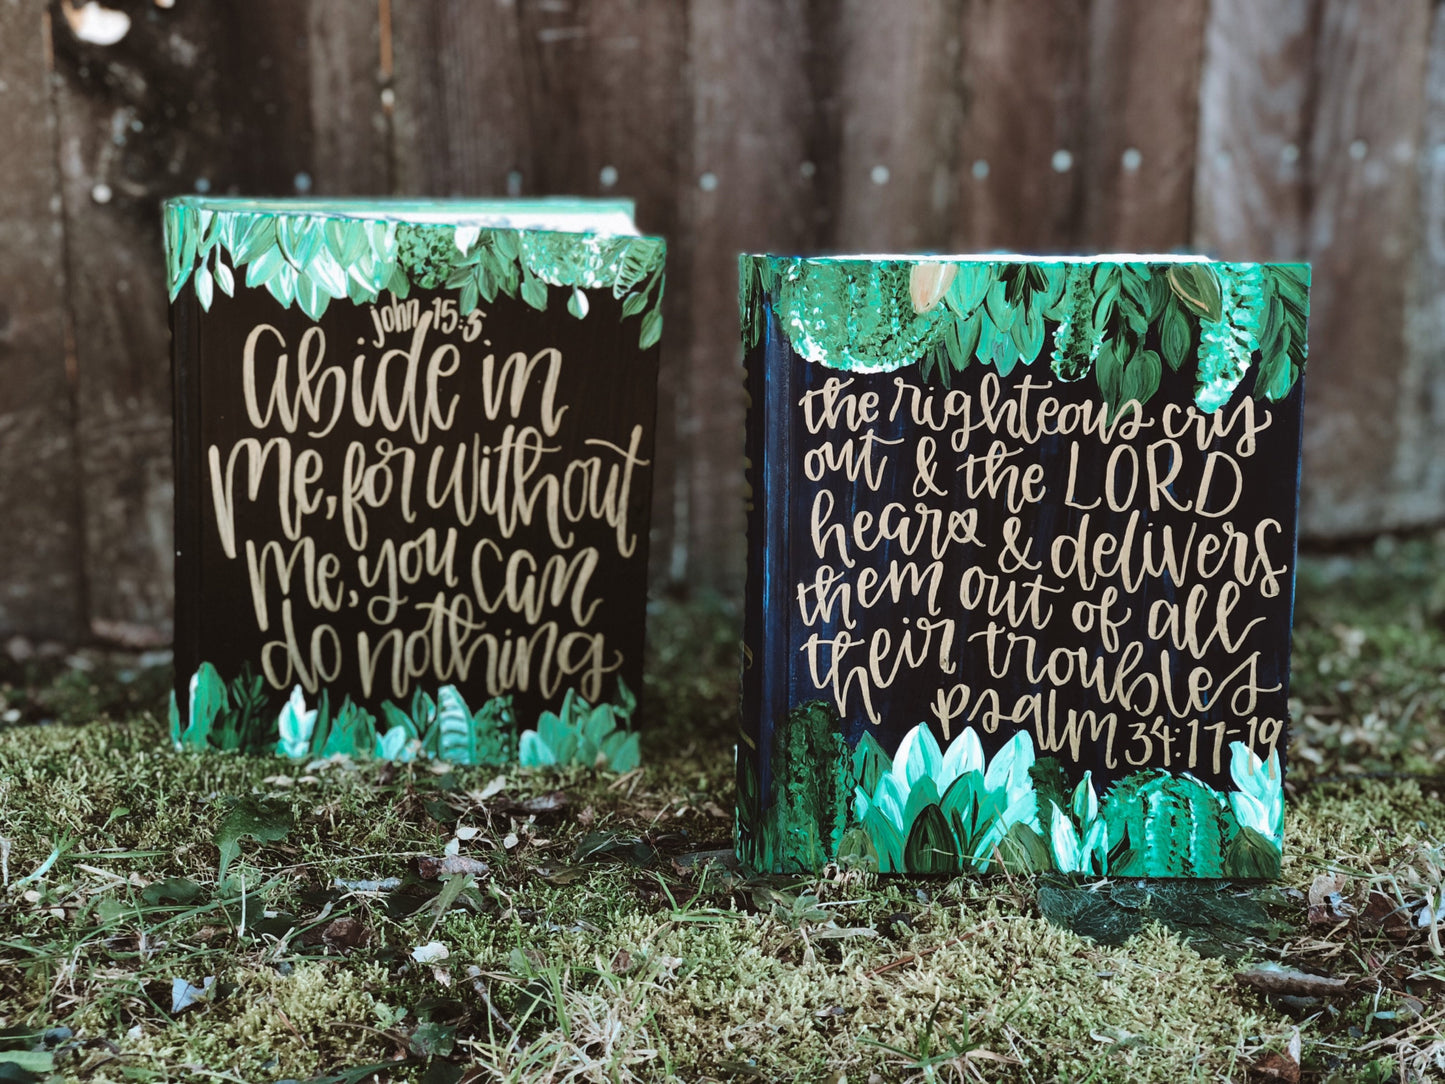 john 15:5
abide in
me, for without
me, you can
do nothing
the righteous cry
out & the LORD
hears & delivers
them out of all
their troubles
psalm 34:17-19